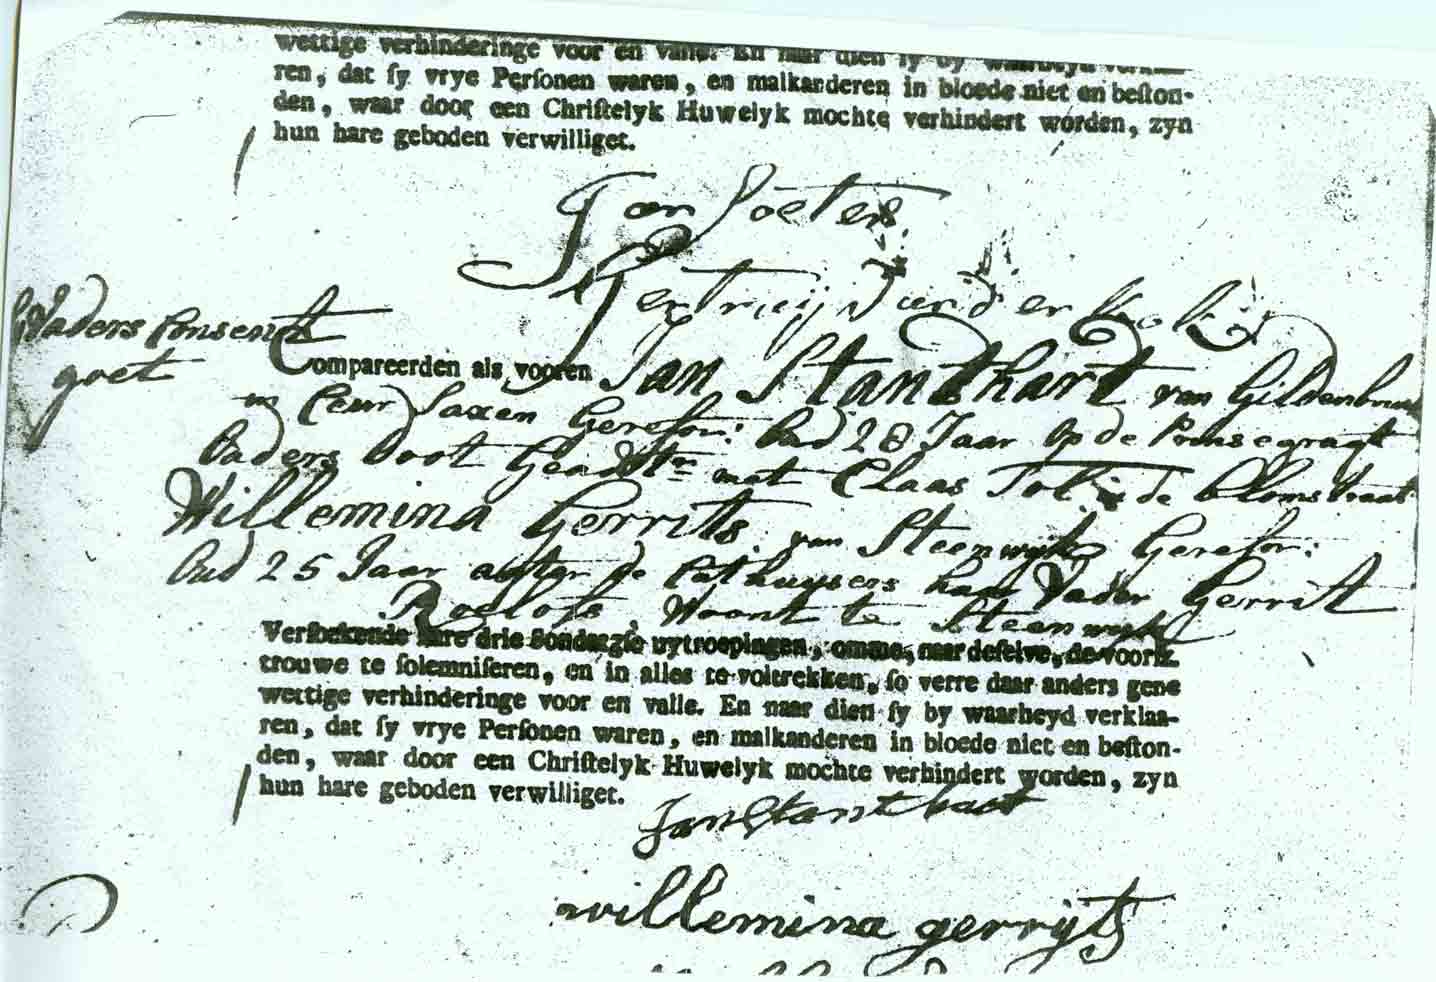 wettige verhinderinge voor en valle. En naar dien ſy by waarheyd verklaa-
ren, dat ſy vrye Perſonen waren, en malkanderen in bloede niet en beſton-
den, waar door een Chriſtelyk Huwelyk mochte verhindert worden, zyn
hun hare geboden verwilliget.
Jan Poeters
Geertruij van der Kolk
Vaders Consent
goet
Compareerden als vooren Jan Stanthart van
in Ceur Saxen Gerefor: Oud 28 Jaar op de Prinsegragt
Ouders Doot Geadstr. met Claas Tol in de blomstraat
Willemina Gerrits van Steenwijk Gerefor:
Oud 25 Jaar agter de Cathuysers haar Vader Gerrit
Roelofs Woont te Steenwijk
Verſoekende hare drie Sondaegſe uytroepingen, omme, naar deſelve, de voorſz.
trouwe te ſolemniſeren, en in alles te voltrekken, ſo verre daar anders gene
wettige verhinderinge voor en valle. En naar dien ſy by waarheyd verklaa-
ren, dat ſy vrye Perſonen waren, en malkanderen in bloede niet en beſton-
den, waar door een Chriſtelyk Huwelyk mochte verhindert worden, zyn
hun hare geboden verwilliget.
Jan Stanthart
willemina gerrijts